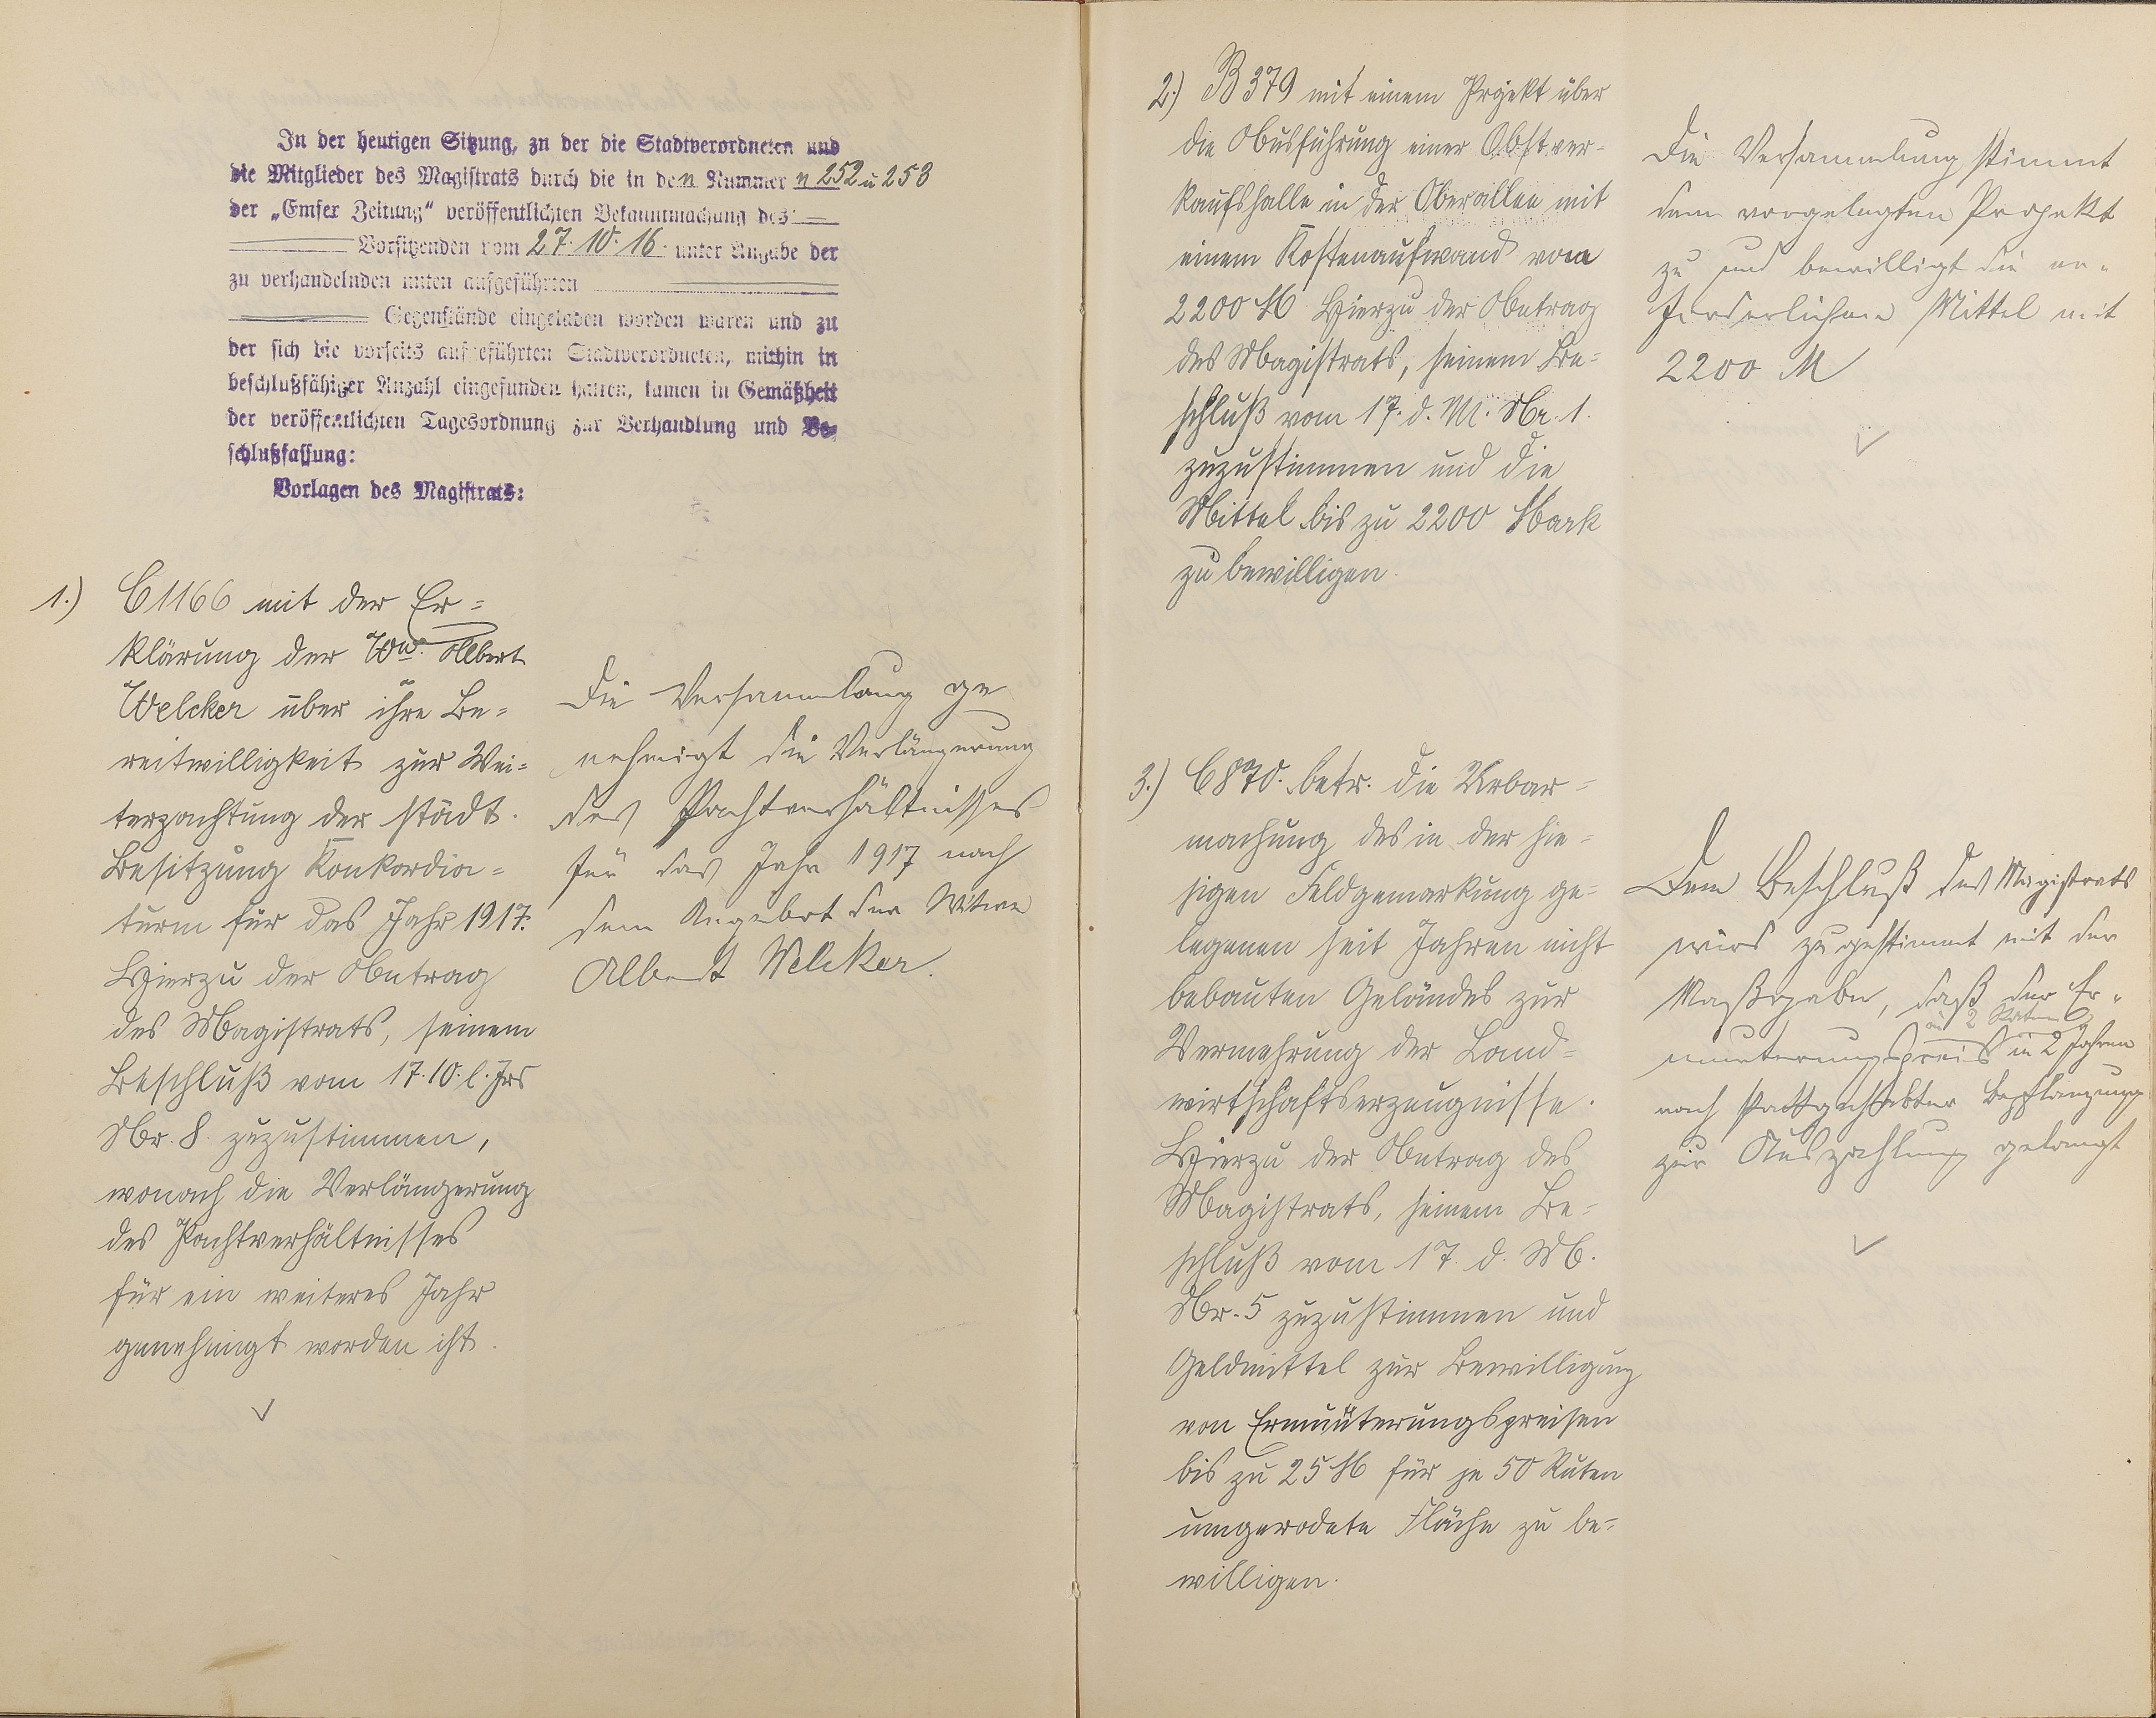 In der heutigen Sitzung, zu der die Stadtverordneten und
die Mitglieder des Magistrats durch die in den Nummern 252 u 253
der „Emser Zeitung“ veröffentlichten Bekanntmachung des
Vorsitzenden vom 27. 10. 16. unter Angabe der
zu verhandelnden unten aufgeführten
Gegenstände eingeladen worden waren und zu
der sich die vorseits aufgeführten Stadtverordneten, mithin in
beschlußfähiger Anzahl eingefunden hatten, kamen in Gemäßheit
der veröffentlichten Tagesordnung zur Verhandlung und Be-
schlußfassung:
Vorlagen des Magistrats:
1.) C 1166 mit der Er=
klärung der Ww. Albert
Welcker über ihre Be=
reitwilligkeit zur Wei=
terpachtung der städt.
Besitzung Konkordia=
turm für das Jahr 1917.
Hierzu der Antrag
des Magistrats, seinem
Beschluß vom 17.10. l. Jrs
Nr. 8. zuzustimmen,
wonach die Verlängerung
des Pachtverhältnisses
für ein weiteres Jahr
genehmigt worden ist.
Die Versammlung ge
nehmigt die Verlängerung
des Pachtverhältnisses
für das Jahr 1917 nach
dem Angebot der Witwe
Albert Welcker.
2.) B 379 mit einem Projekt über
die Ausführung einer Obstver=
kaufshalle in der Oberallee mit
einem Kostenaufwand von
2200 M Hierzu der Antrag
des Magistrats, seinem Be=
schluß vom 17. d. M. Nr. 1.
zuzustimmen und die
Mittel bis zu 2200 Mark
zu bewilligen.
Die Versammlung stimmt
dem vorgelegten Projekt
zu und bewilligt die er-
forderlichen Mittel mit
2200 M
3.) C 870. betr. die Urbar=
machung des in der hie=
sigen Feldgemarkung ge=
legenen seit Jahren nicht
bebauten Geländes zur
Vermehrung der Land=
wirtschaftserzeugnisse.
Hierzu der Antrag des
Magistrats, seinem Be=
schluß vom 17. d. M.
Nr. 5 zuzustimmen und
Geldmittel zur Bewilligung
von Ermunterungspreisen
bis zu 25 M für je 50 Ruten
umgerodete Fläche zu be=
willigen.
Dem Beschluß des Magistrats
wird zugestimmt mit der
Maßgabe, daß der Er-
in 2 Raten
munterungspreis in 2 Jahren
nach stattgehabter Bepflanzung
zur Auszahlung gelangt